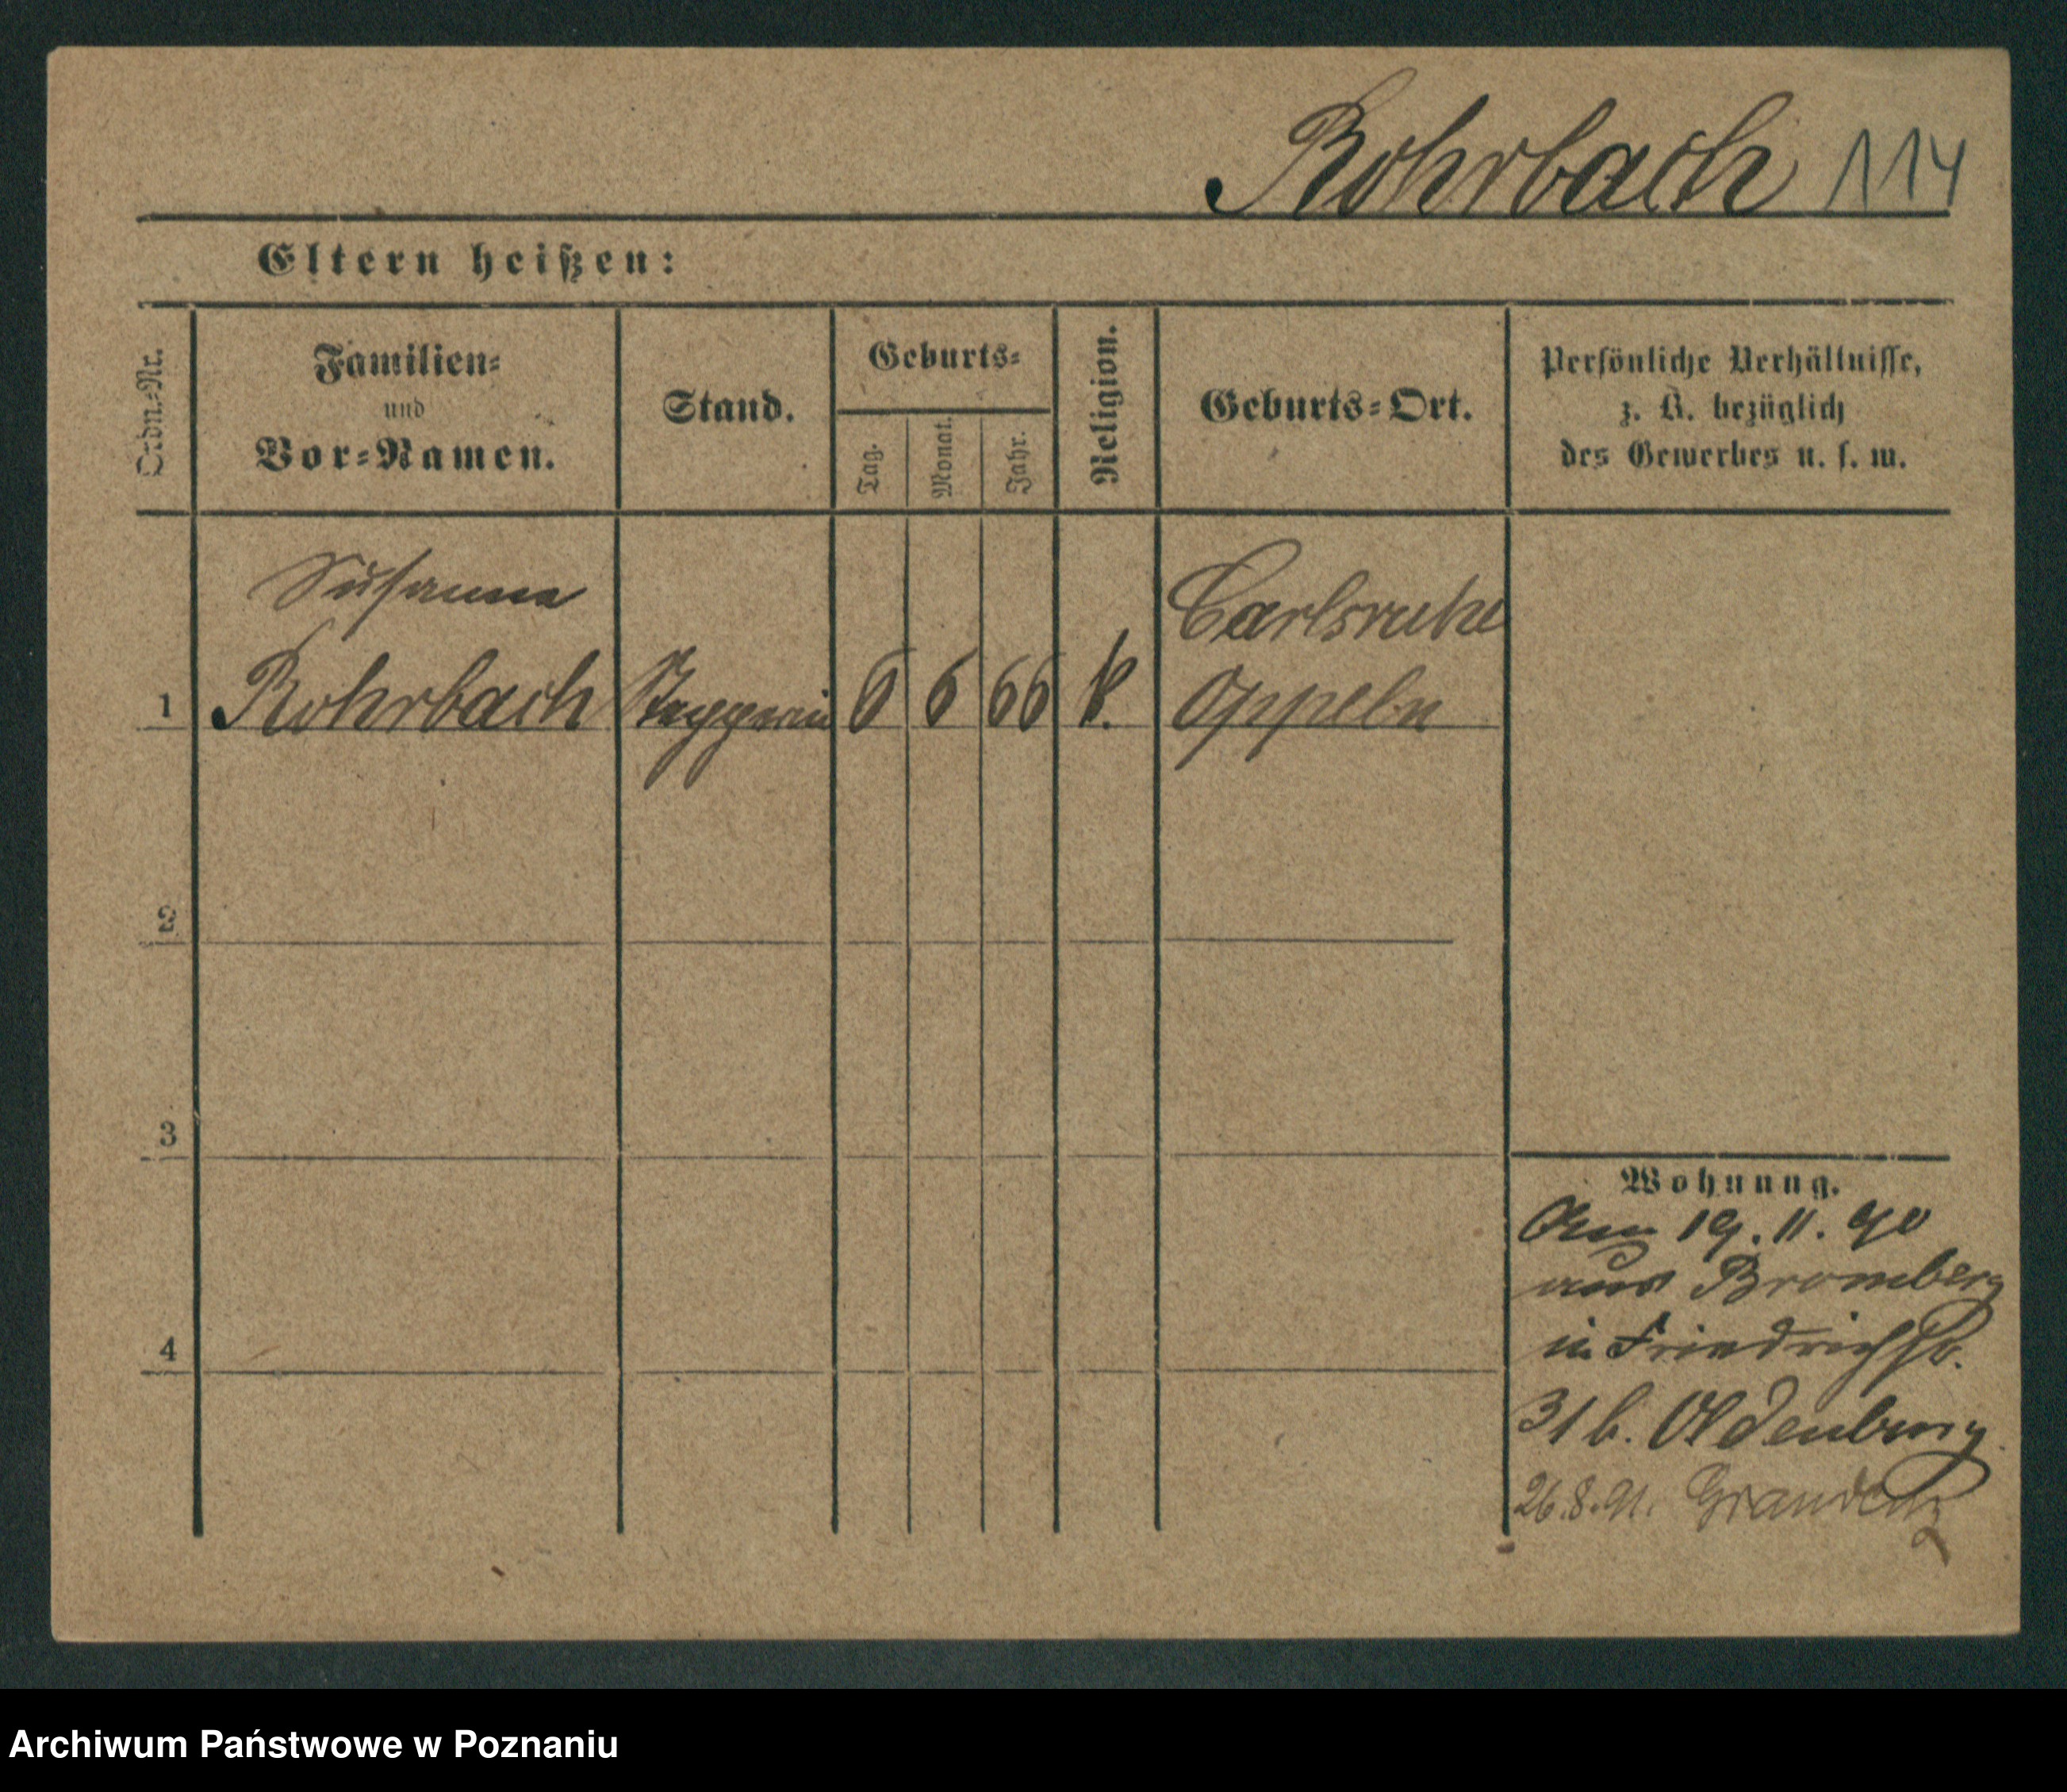 Rohrbach 114
Eltern heißen:
Ordn.-Nr.
Familien-
und
Vor-Namen.
Stand.
Geburts-
Tag.
Monat.
Jahr.
Religion.
Geburts-Ort.
Persönliche Verhältnisse,
z. B. bezüglich
des Gewerbes u. s. w.
Susanne
Carlsruhe
1 Rohrbach 6 6 66 k. Oppeln
2
3
4
Wohnung.
Am 19. 11. 90
aus Bromberg
in Friedrichstr.
31 b. Oldenburg
26.8.91. Graudenz
Archiwum Państwowe w Poznaniu